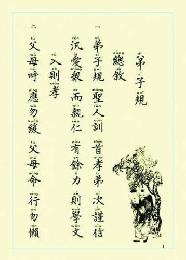 弟子規
總敘
一 弟子規 聖人訓 首孝弟 次謹信
汎愛眾 而親仁 有餘力 則學文
入則孝
二 父母呼 應勿緩 父母命 行勿懶
1